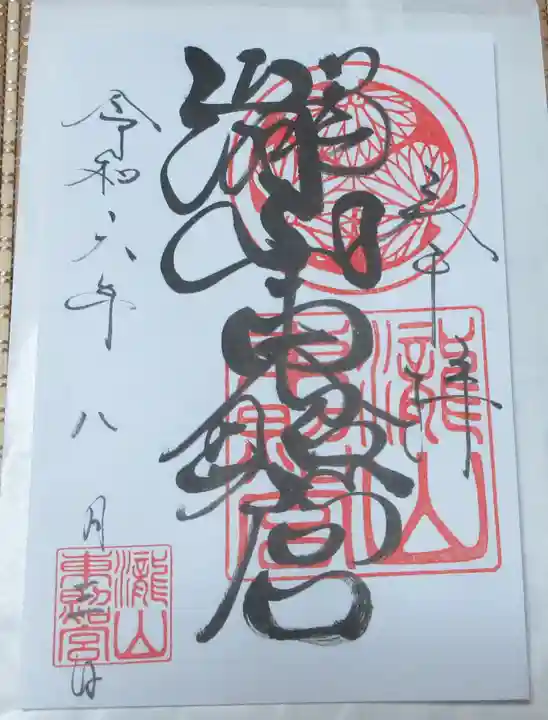 瀧山東照宮
瀧山東照宮
令和六年八月
日
瀧山東照宮